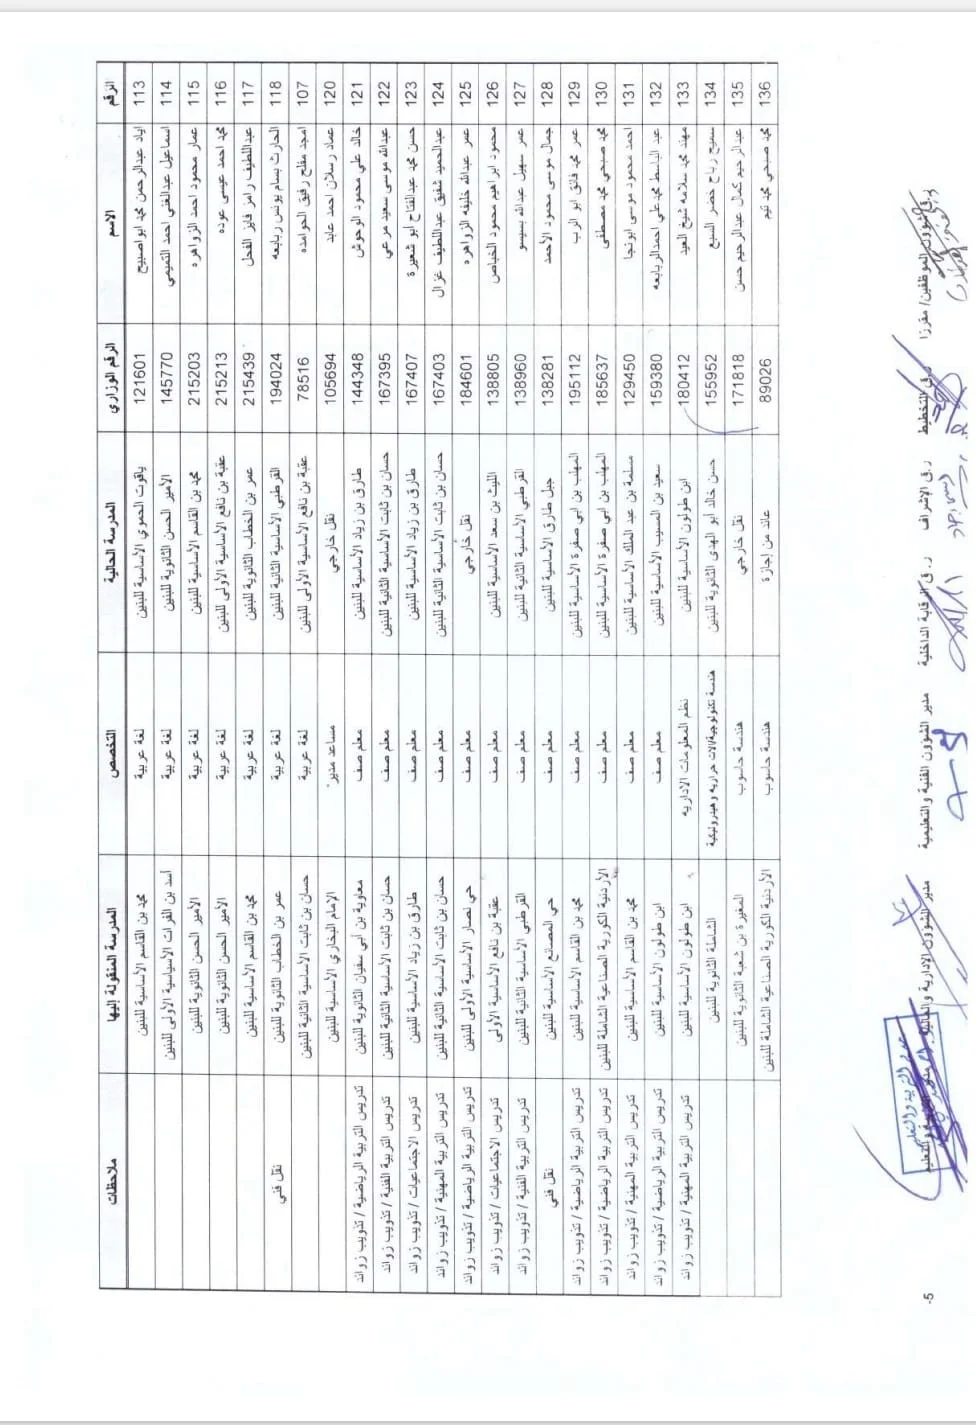 الرقم الاسم الرقم الوزاري المدرسة الحالية التخصص المدرسة المنقولة إليها ملاحظات
113 اياد عبدالرحمن محمد ابواصبيح 121601 ياقوت الحموي الأساسية للبنين لغة عربية محمد بن القاسم الأساسية للبنين
114 اسماعيل عبدالغني احمد التميمي 145770 الأمير الحسن الثانوية للبنين لغة عربية أسد بن الفرات الأساسية الأولى للبنين
115 عمار محمود احمد الزواهره 215203 محمد بن القاسم الأساسية للبنين لغة عربية الأمير الحسن الثانوية للبنين
116 محمد احمد عيسى عوده 215213 عقبة بن نافع الأساسية الأولى للبنين لغة عربية الأمير الحسن الثانوية للبنين
117 عبداللطيف رامز فايز الفحل 215439 عمر بن الخطاب الثانوية للبنين لغة عربية محمد بن القاسم الأساسية للبنين
118 الحارث بسام يونس ربابعه 194024 القرطبي الأساسية الثانية للبنين لغة عربية عمر بن الخطاب الثانوية للبنين نقل فني
107 امجد مفلح رفيق الحوامده 78516 عقبة بن نافع الأساسية الأولى للبنين لغة عربية حسان بن ثابت الأساسية الثانية للبنين
120 عماد رسلان احمد عابد 105694 نقل خارجي مساعد مدير الإمام البخاري الأساسية للبنين
121 خالد علي محمود الوحوش 144348 طارق بن زياد الأساسية للبنين معلم صف معاوية بن أبي سفيان الثانوية للبنين تدريس التربية الرياضية / تذويب زوائد
122 عبدالله موسى سعيد مرعي 167395 حسان بن ثابت الأساسية الثانية للبنين معلم صف حسان بن ثابت الأساسية الثانية للبنين تدريس التربية الفنية / تذويب زوائد
123 حسن محمد عبدالفتاح أبو شعيرة 167407 طارق بن زياد الأساسية للبنين معلم صف طارق بن زياد الأساسية للبنين تدريس الاجتماعيات / تذويب زوائد
124 عبدالحميد شفيق عبداللطيف غزال 167403 حسان بن ثابت الأساسية الثانية للبنين معلم صف حسان بن ثابت الأساسية الثانية للبنين تدريس التربية المهنية / تذويب زوائد
125 عمر عبدالله خليفه الزواهره 184601 نقل خارجي معلم صف حي نصار الأساسية الأولى للبنين تدريس التربية الرياضية / تذويب زوائد
126 محمود ابراهيم محمود الخباص 138805 الليث بن سعد الأساسية للبنين معلم صف عقبة بن نافع الأساسية الأولى تدريس الاجتماعيات / تذويب زوائد
127 عمر سهيل عبدالله بسيسو 138960 القرطبي الأساسية الثانية للبنين معلم صف القرطبي الأساسية الثانية للبنين تدريس التربية الفنية / تذويب زوائد
128 جمال موسى محمود الأحمد 138281 جبل طارق الأساسية للبنين معلم صف حي المصانع الأساسية للبنين نقل فني
129 عمر محمد فائق ابو الرب 195112 المهلب بن ابي صفرة الأساسية للبنين معلم صف محمد بن القاسم الأساسية للبنين تدريس التربية الرياضية / تذويب زوائد
130 محمد صبحي محمد مصطفى 185637 المهلب بن ابي صفرة الأساسية للبنين معلم صف الأردنية الكورية الصناعية الشاملة للبنين تدريس التربية الرياضية / تذويب زوائد
131 احمد محمود موسى ابونجا 129450 مسلمة بن عبد الملك الأساسية للبنين معلم صف محمد بن القاسم الأساسية للبنين تدريس التربية المهنية / تذويب زوائد
132 عبد الباسط محمدعلي احمدالربابعه 159380 سعيد بن المسيب الأساسية للبنين معلم صف ابن طولون الأساسية للبنين تدريس التربية الرياضية / تذويب زوائد
133 مهند محمد سلامه شيخ العيد 180412 ابن طولون الأساسية للبنين نظم المعلومات الاداريه ابن طولون الأساسية للبنين تدريس التربية المهنية / تذويب زوائد
134 سميع رباح خضر السبع 155952 حسن خالد أبو الهدى الثانوية للبنين هندسة تكنولوجية/الات حرارية وهيدروليكية الشاملة الثانوية للبنين
135 عبدالرحيم كمال عبدالرحيم حسن 171818 نقل خارجي هندسة حاسوب المغيرة بن شعبة الثانوية للبنين
136 محمد صبحي محمد تيم 89026 عائد من إجازة هندسة حاسوب الأردنية الكورية الصناعية الشاملة للبنين
ر.ق شؤون الموظفين/ مفرزا ر.ق التخطيط ر.ق الإشراف ر.ق الرقابة الداخلية مدير الشؤون الفنية والتعليمية مدير الشؤون الإدارية والمالية
مدير التربية والتعليم
5-